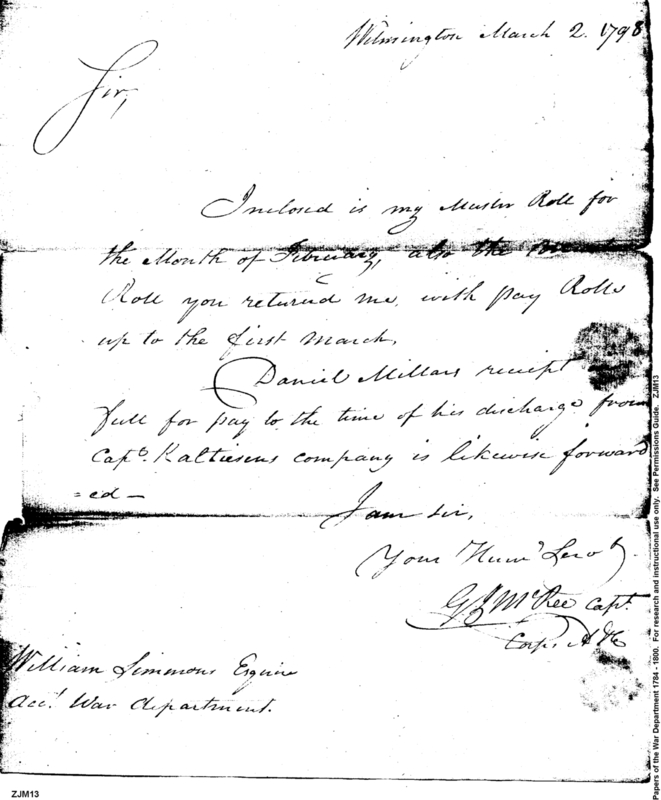 Wilmington March 2. 1798
Sir,
Inclosed is my Muster Roll for
the Month of February, also the
Roll you returned me, with pay Rolls
up to the first March.
Daniel Millars receipt
full for pay to the time of his discharge from
Capt. Kalteisens company is likewise forward
=ed—
I am Sir,
Your Huml Servt.
G J McRee Capt.
Corps A & E
William Simmons Esquire
Acct. War department.
ZJM13
Papers of the War Department 1784 - 1800. For research and instructional use only. See Permissions Guide. ZJM13